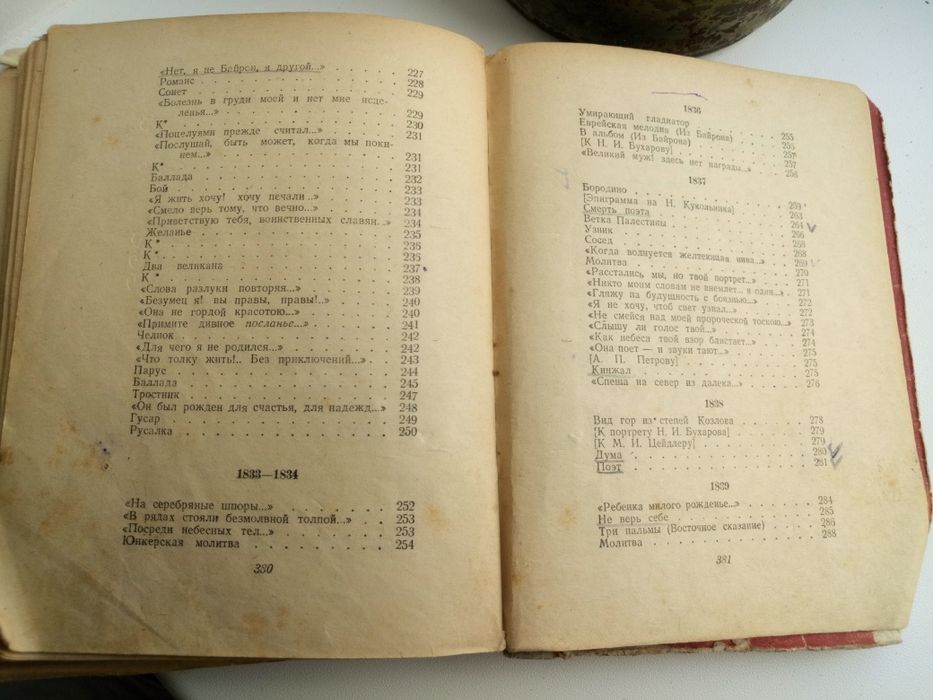 «Нет, я не Байрон, я другой...» 227
Романс 228
Сонет 229
«Болезнь в груди моей и нет мне исце-
ленья...» 229
К* 230
«Поцелуями прежде считал...» 231
«Послушай, быть может, когда мы поки-
нем...» 231
К* 231
Баллада 232
Бой 233
«Я жить хочу! хочу печали..» 233
«Смело верь тому, что вечно...» 234
«Приветствую тебя, воинственных славян.. 234
Желанье 235
К * 236
К * 236
Два великана 237
К * 238
«Слова разлуки повторяя...» 239
«Безумец я! вы правы, правы!..» 240
«Она не гордой красотою...» 240
«Примите дивное посланье...» 241
Челнок 242
«Для чего я не родился...» 242
«Что толку жить!.. Без приключений...» 243
Парус 244
Баллада 245
Тростник 247
«Он был рожден для счастья, для надежд...» 248
Гусар 249
Русалка 250
1833—1834
«На серебряные шпоры...» 252
«В рядах стояли безмолвной толпой...» 253
«Посреди небесных тел...» 253
Юнкерская молитва 254
380
1836
Умирающий гладиатор 255
Еврейская мелодия (Из Байрона) 256
В альбом (Из Байрона) 257
[К Н. И. Бухарову] 257
«Великий муж! здесь нет награды...» 258
1837
Бородино 259
[Эпиграмма на Н. Кукольника] 263
Смерть поэта 264
Ветка Палестины 266
Узник 268
Сосед 268
«Когда волнуется желтеющая нива...» 269
Молитва 270
«Расстались мы, но твой портрет...» 271
«Никто моим словам не внемлет... я один...» 271
«Гляжу на будущность с боязнью...» 272
«Я не хочу, чтоб свет узнал...» 272
«Не смейся над моей пророческой тоскою...» 273
«Слышу ли голос твой...» 274
«Как небеса твой взор блистает...» 274
«Она поет — и звуки тают...» 275
[А. П. Петрову] 275
Кинжал 275
«Спеша на север из далека...» 276
1838
Вид гор из степей Козлова 278
[К портрету Н. И. Бухарова] 279
[К М. И. Цейдлеру] 279
Дума 280
Поэт 281
1839
«Ребенка милого рожденье...» 284
Не верь себе 285
Три пальмы (Восточное сказание) 286
Молитва 288
381